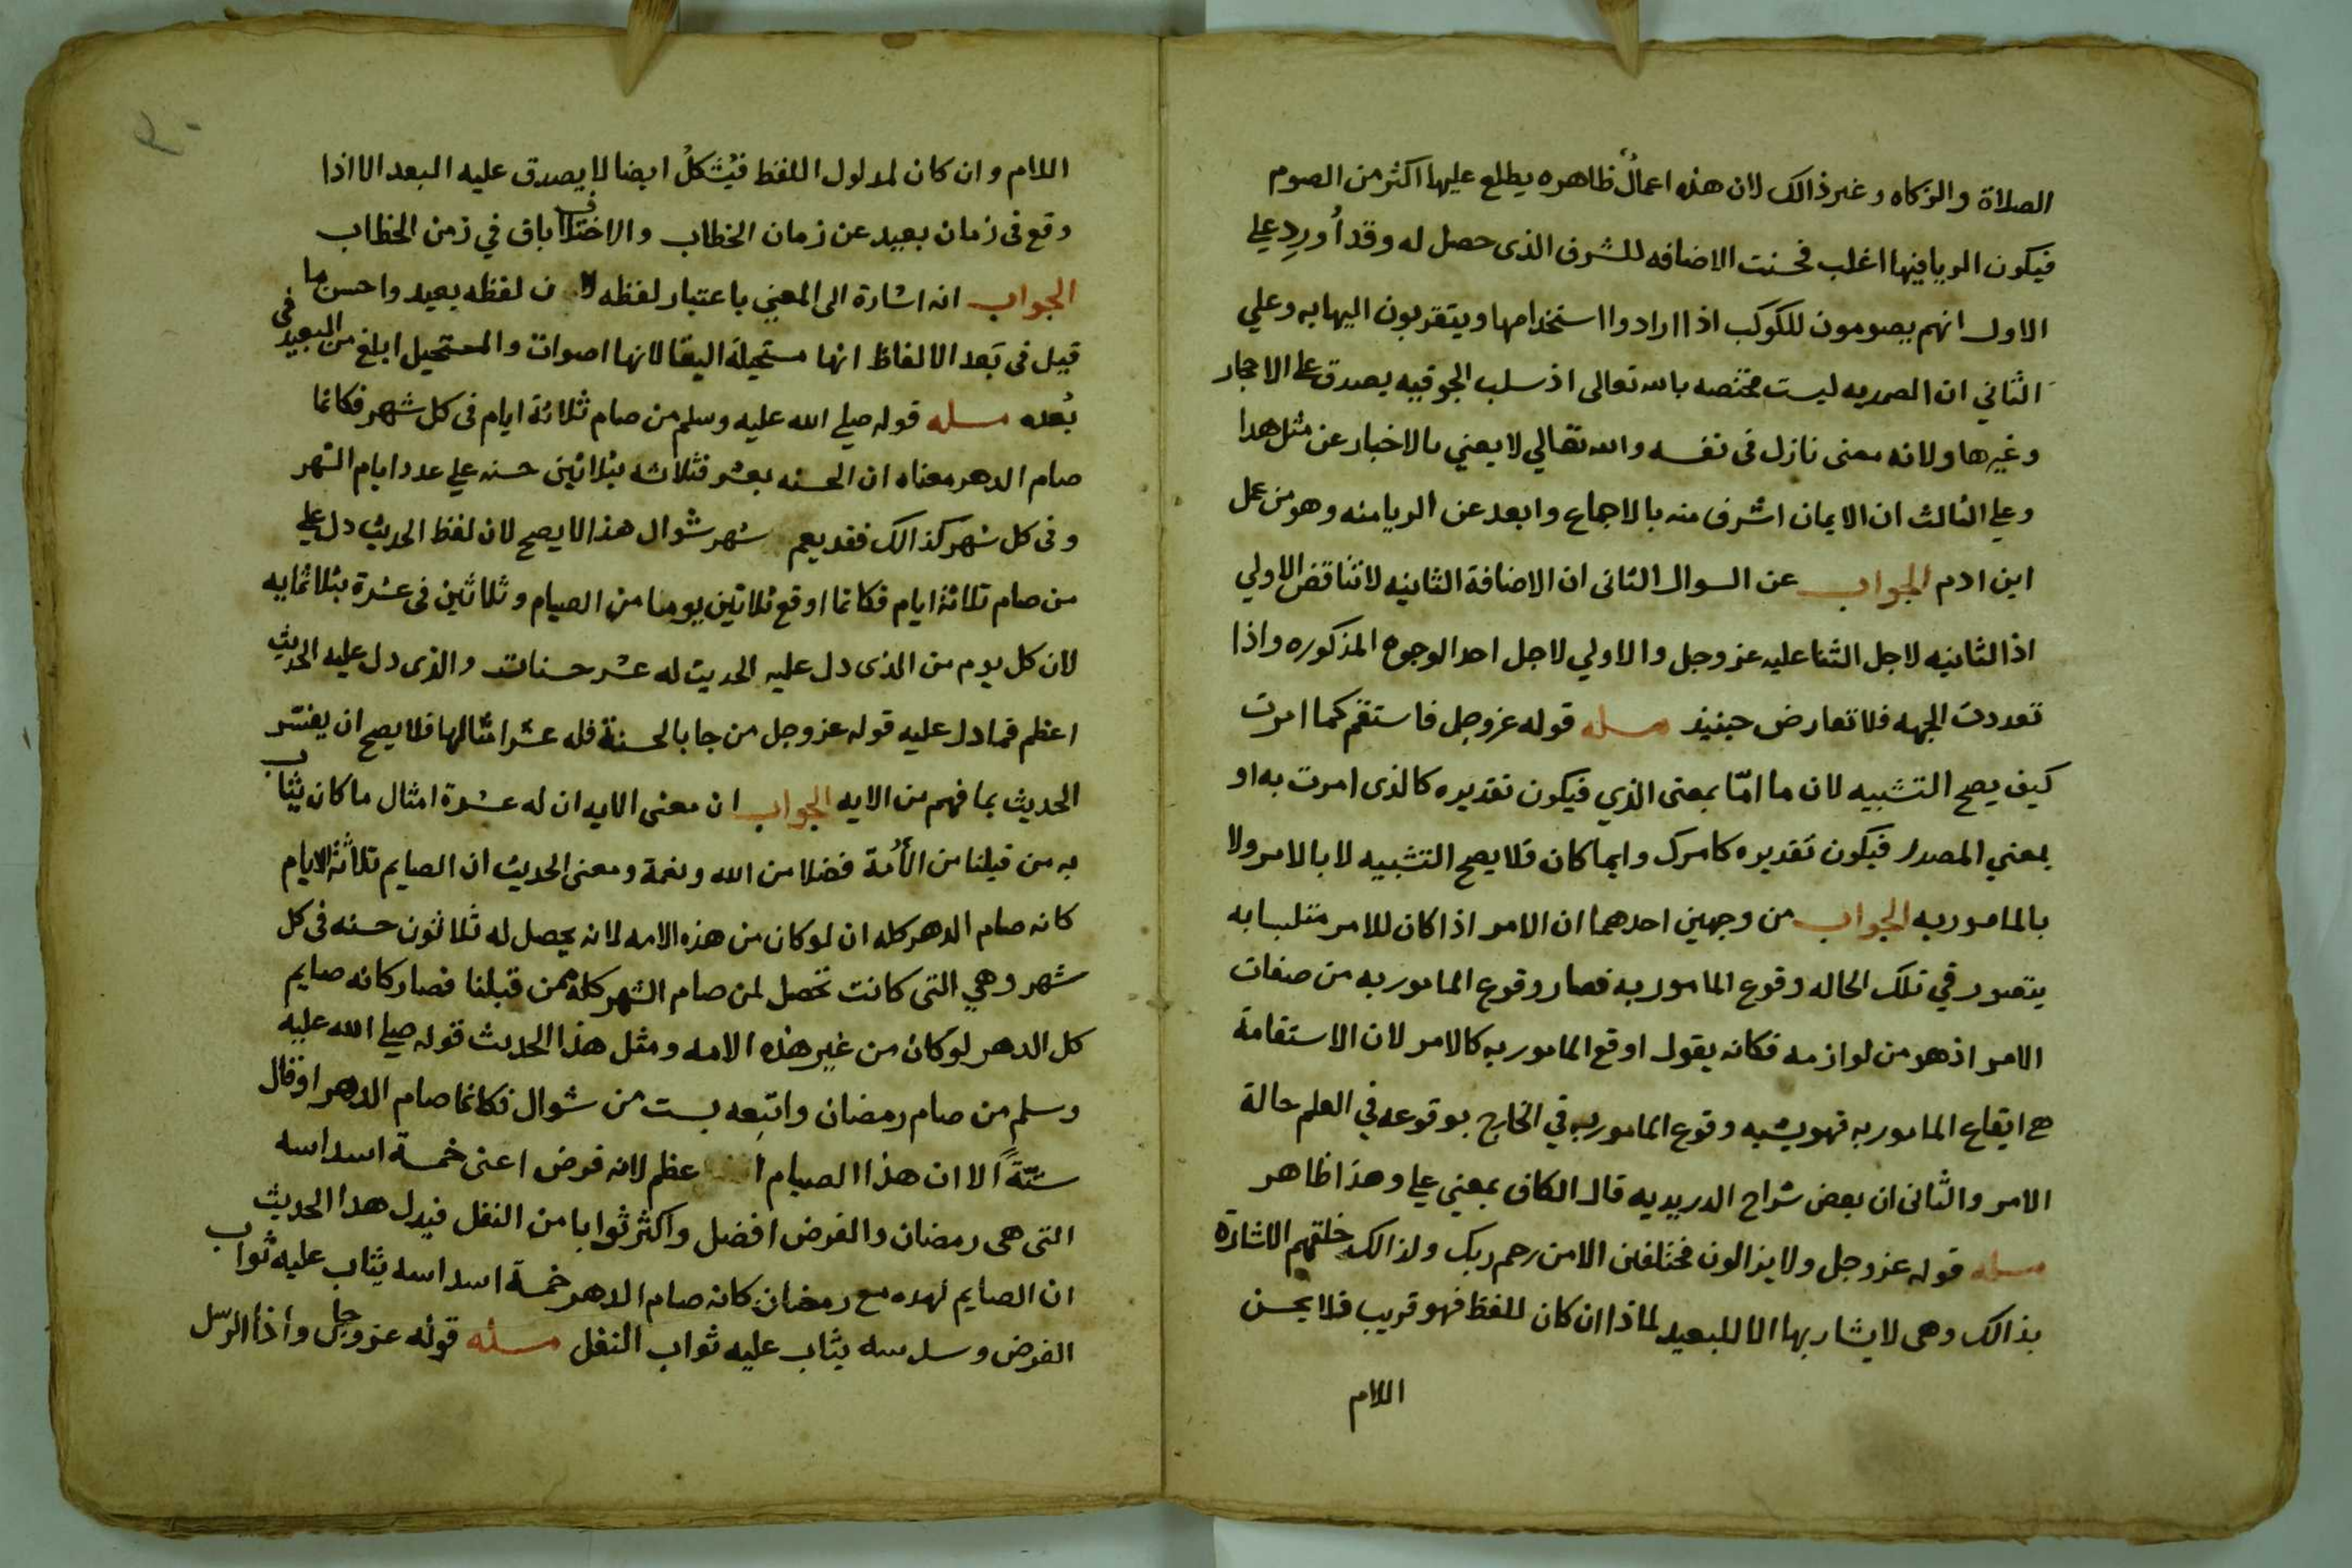 الصلاة والزكاه وغير ذالك لان هذه اعمالٌ ظاهره يطلع عليها اكثر من الصوم
فيكون الريا فيها اغلب فحسنت الاضافه للشرف الذى حصل له وقد أُورِد علي
الاول انهم يصومون للكوكب اذا ارادوا استخدامها ويتقربون اليها به وعلي
الثاني ان الصمديه ليست مختصه بالله تعالى اذ سلب الجوفيه يصدق على الاحجار
وغيرها ولانه معنى نازل فى نفسه والله تعالي لا يعني بالاخبار عن مثل هدا
وعلي الثالث ان الايمان اشرف منه بالاجماع وابعد عن الريا منه وهو من عمل
ابن ادم الجواب عن السوال الثانى ان الاضافة الثانيه لا تناقض الاولي
اذ الثانيه لاجل الثنا عليه عز وجل والاولي لاجل احد الوجوه المذكوره واذا
تعددت الجهه فلا تعارض حينيذ مسله قوله عز وجل فاستقم كما امرت
كيف يصح التشبيه لان ما امّا بمعنى الذي فيكون تقديره كالذى امرت به او
بمعني المصدر فيكون تقديره كامرك وايما كان فلا يصح التشبيه لا بالامر ولا
بالمامور به الجواب من وجهين احدهما ان الامر اذا كان للامر متلبسا به
يتصور في تلك الحاله وقوع المامور به فصار وقوع المامور به من صفات
الامر اذ هو من لوازمه فكانه يقول اوقع المامور به كالامر لان الاستقامة
هي ايقاع المامور به فهو يشبه وقوع المامور به في الخارج بوقوعه في العلم حالة
الامر والثانى ان بعض شراح الدريديه قال الكاف بمعني علي وهذا ظاهر
مسله قوله عز وجل ولا يزالون مختلفين الا من رحم ربك ولذالك خلقهم الاشارة
بذالك وهى لا يشار بها الا للبعيد لماذا ان كان للفظ فهو قريب فلا يحسن
اللام
اللام وان كان لمدلول اللفظ فيُشكلُ ايضا لا يصدق عليه البعد الا اذا
وقع فى زمان بعيد عن زمان الخطاب والاختلاف باق في زمن الخطاب
الجواب انه اشارة الى المعني باعتبار لفظه لان لفظه بعيد واحسن ما
قيل فى بَعد الالفاظ انها مستحيلة البقا لانها اصوات والمستحيل ابلغ من البعيد فى
بُعده مسله قوله صلي الله عليه وسلم من صام ثلاثة ايام فى كل شهر فكانما
صام الدهر معناه ان الحسنه بعشر فثلاثه بثلاثين حسنه علي عدد ايام الشهر
وفى كل شهر كذالك فقد يعم شهر شوال هذا لا يصح لان لفظ الحديث دل علي
من صام ثلاثة ايام فكانما اوقع ثلاثين يوما من الصيام وثلاثين فى عشرة بثلاثمايه
لان كل يوم من الذى دل عليه الحديث له عشر حسنات والذى دل عليه الحديث
اعظم فما دل عليه قوله عز وجل من جا بالحسنة فله عشر امثالها فلا يصح ان يفسر
الحديث بما فهم من الايه الجواب ان معنى الايه ان له عشرة امثال ما كان يثاب
به من قبلنا من الأُمة فضلا من الله ونعمة ومعنى الحديث ان الصايم ثلاثة الايام
كانه صام الدهر كله ان لو كان من هذه الامه لانه يحصل له ثلاثون حسنه فى كل
شهر وهي التى كانت تحصل لمن صام الشهر كله ممن قبلنا فصار كانه صايم
كل الدهر لو كان من غير هذه الامه ومثل هذا الحديث قوله صلي الله عليه
وسلم من صام رمضان واتبعه بست من شوال فكانما صام الدهر او قال
ستّةً الا ان هذا الصيام اعظم لانه فرض اعنى خمسة اسداسه
التى هى رمضان والفرض افضل واكثر ثوابا من النفل فيدل هدا الحديث
ان الصايم لهده مع رمضان كانه صام الدهر خمسة اسداسه يثاب عليه ثواب
الفرض وسدسه يثاب عليه ثواب النفل مسئله قوله عز وجل واذا الرسل